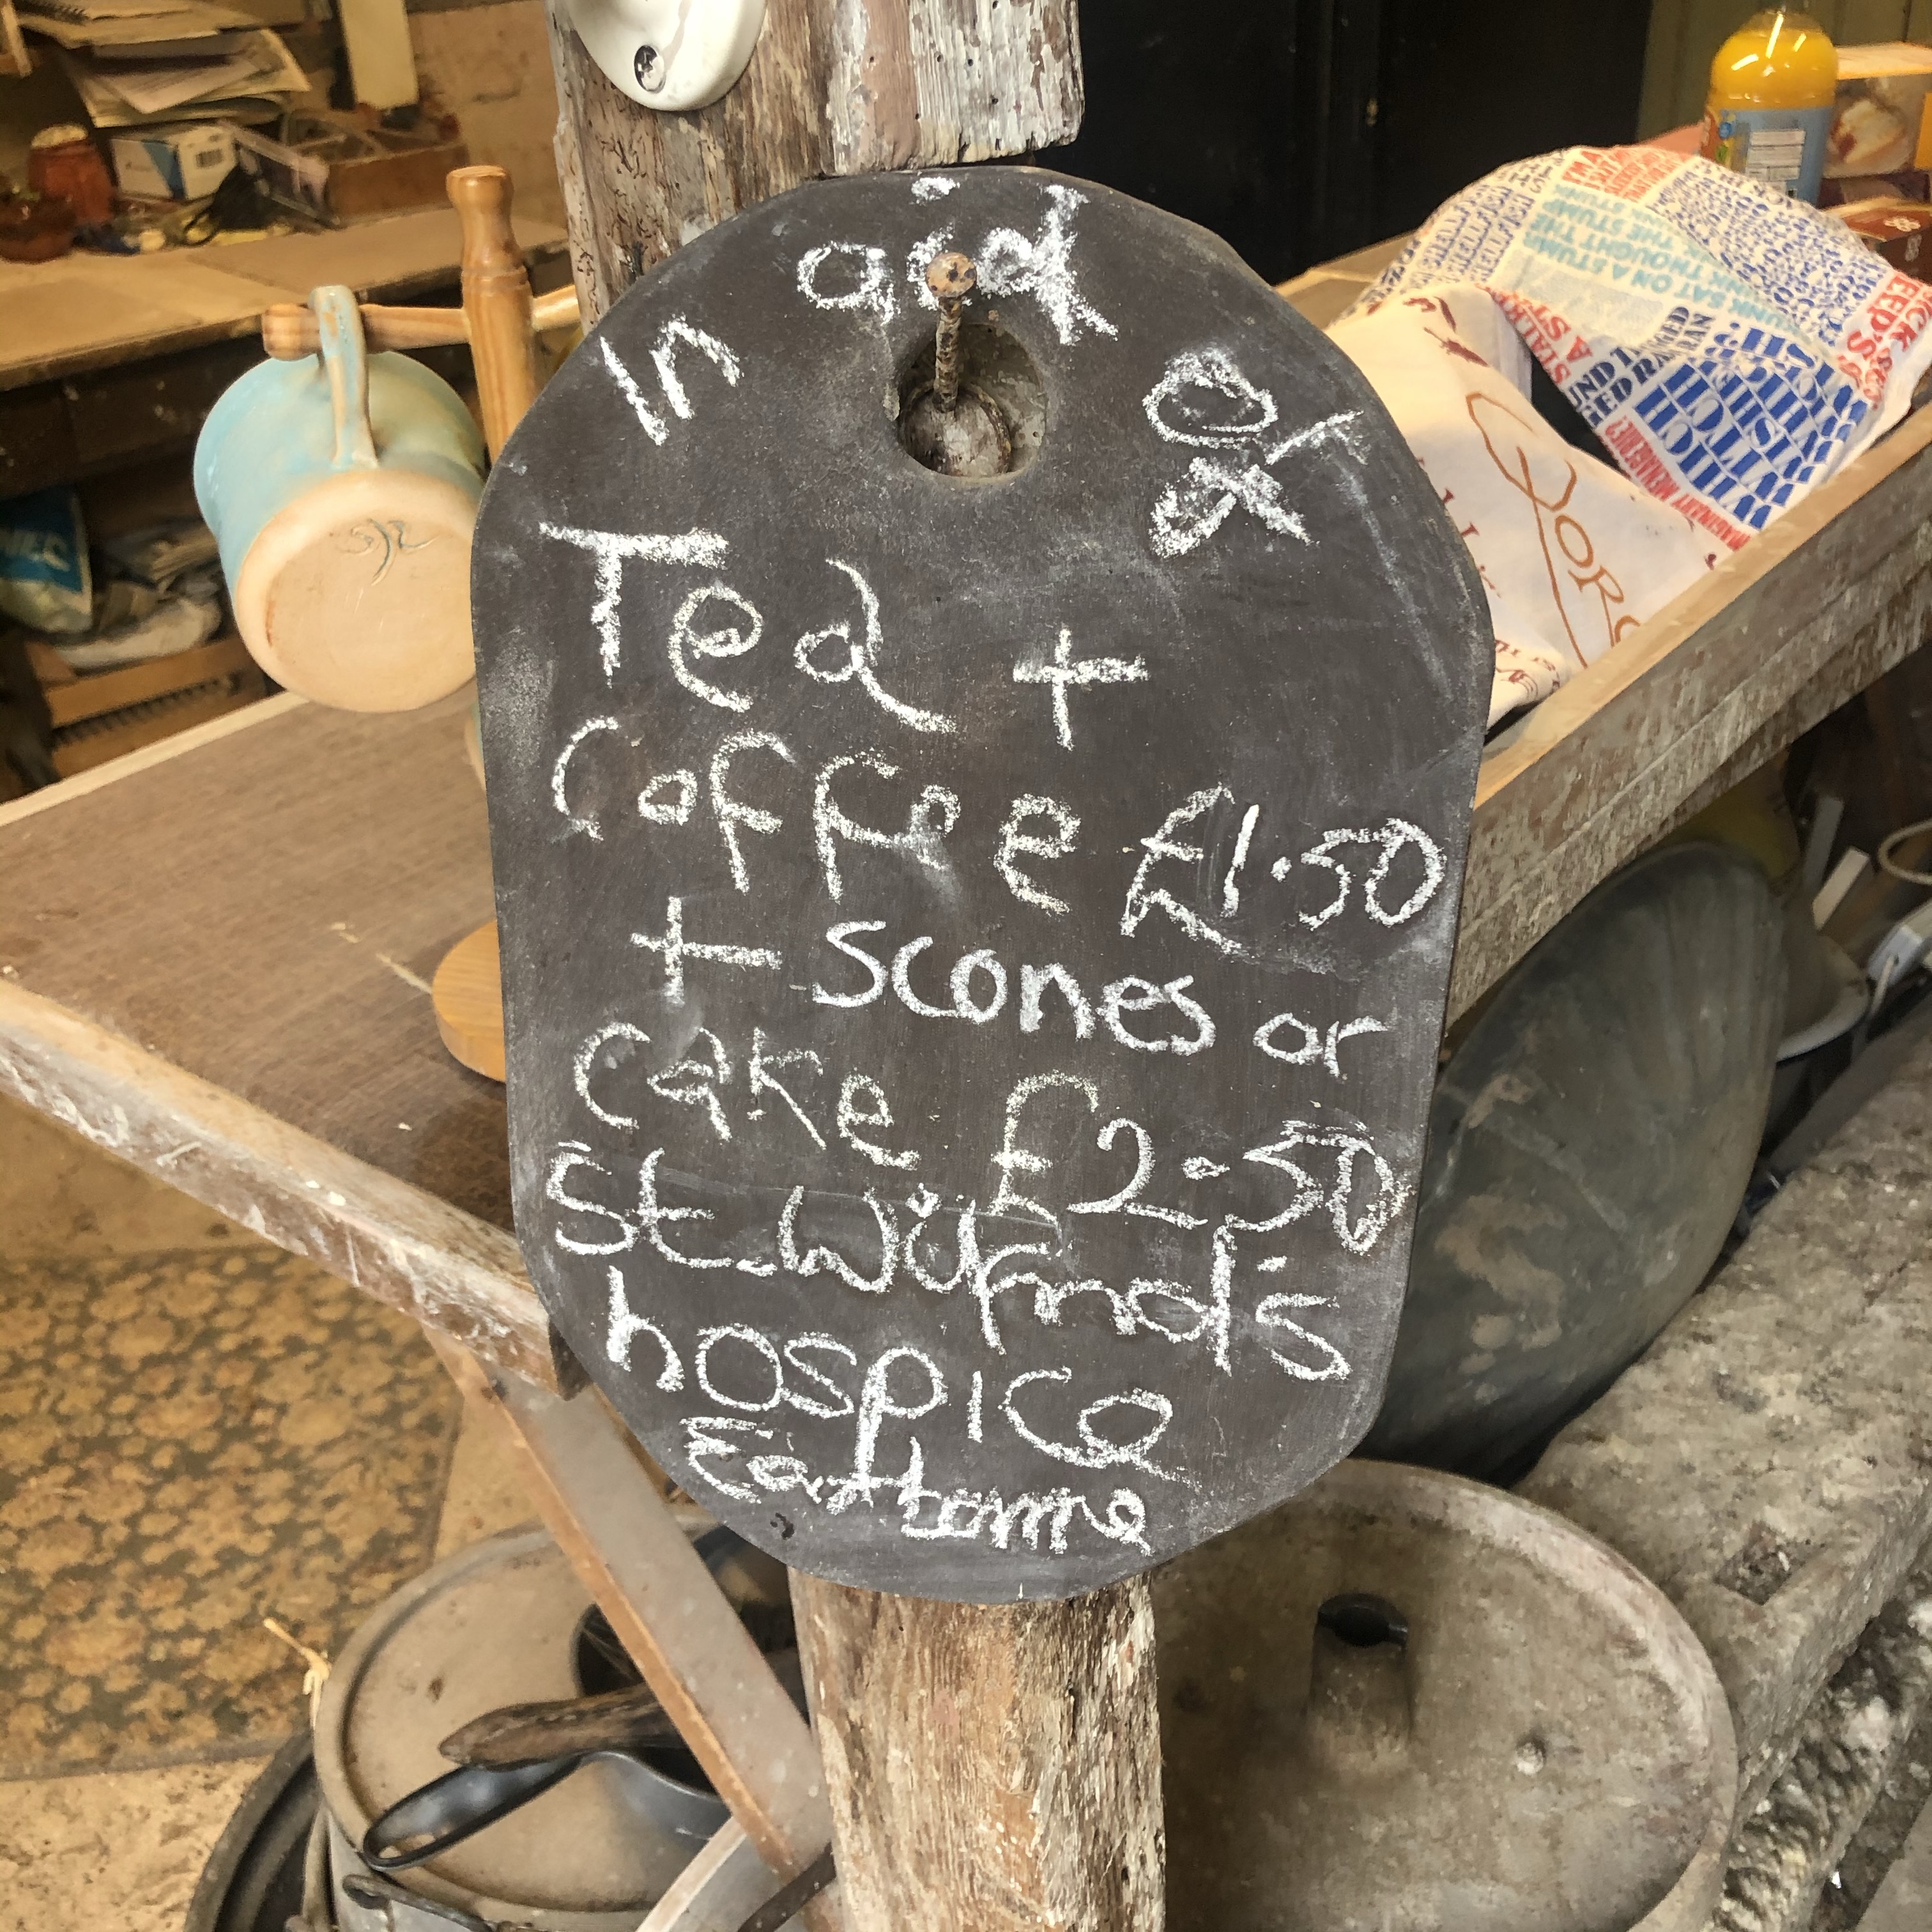 In aid of
Tea +
Coffee £1.50
+ scones or
cake £2.50
St. Wilfrid's
hospice